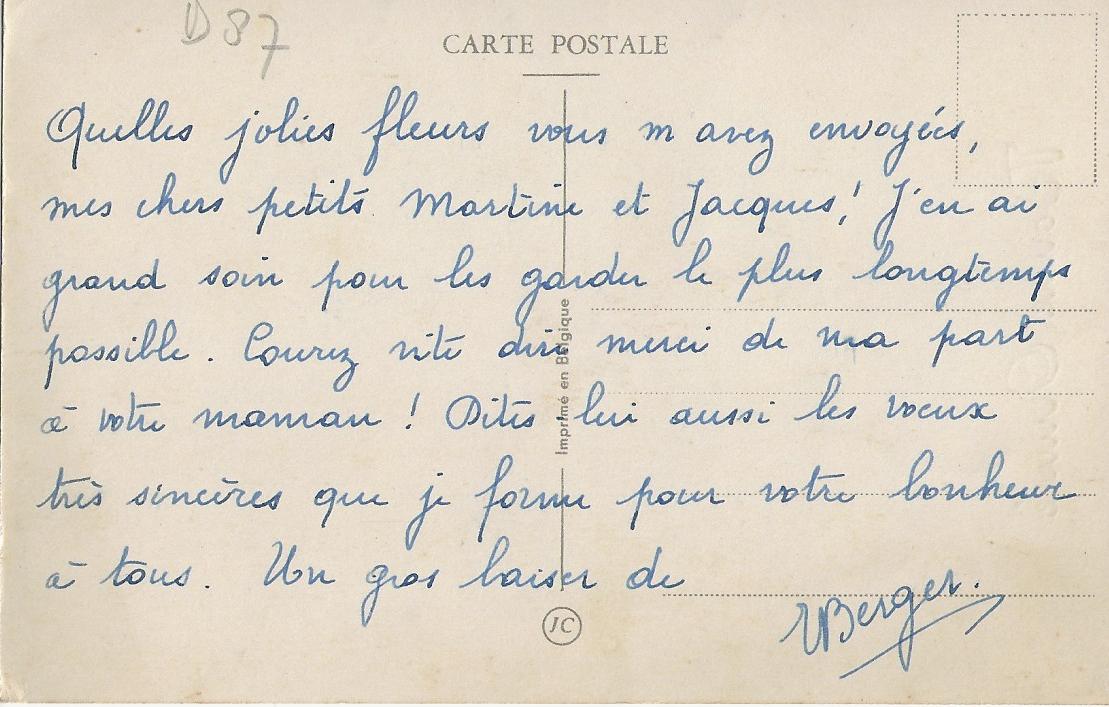 D 87
CARTE POSTALE
Quelles jolies fleurs vous m avez envoyées,
mes chers petits Martine et Jacques ! J'en ai
grand soin pour les garder le plus longtemps
possible. Courez vite dire merci de ma part
à votre maman ! Dites lui aussi les voeux
très sincères que je forme pour votre bonheur
à tous. Un gros baiser de
Berger.
Imprimé en Belgique
JC